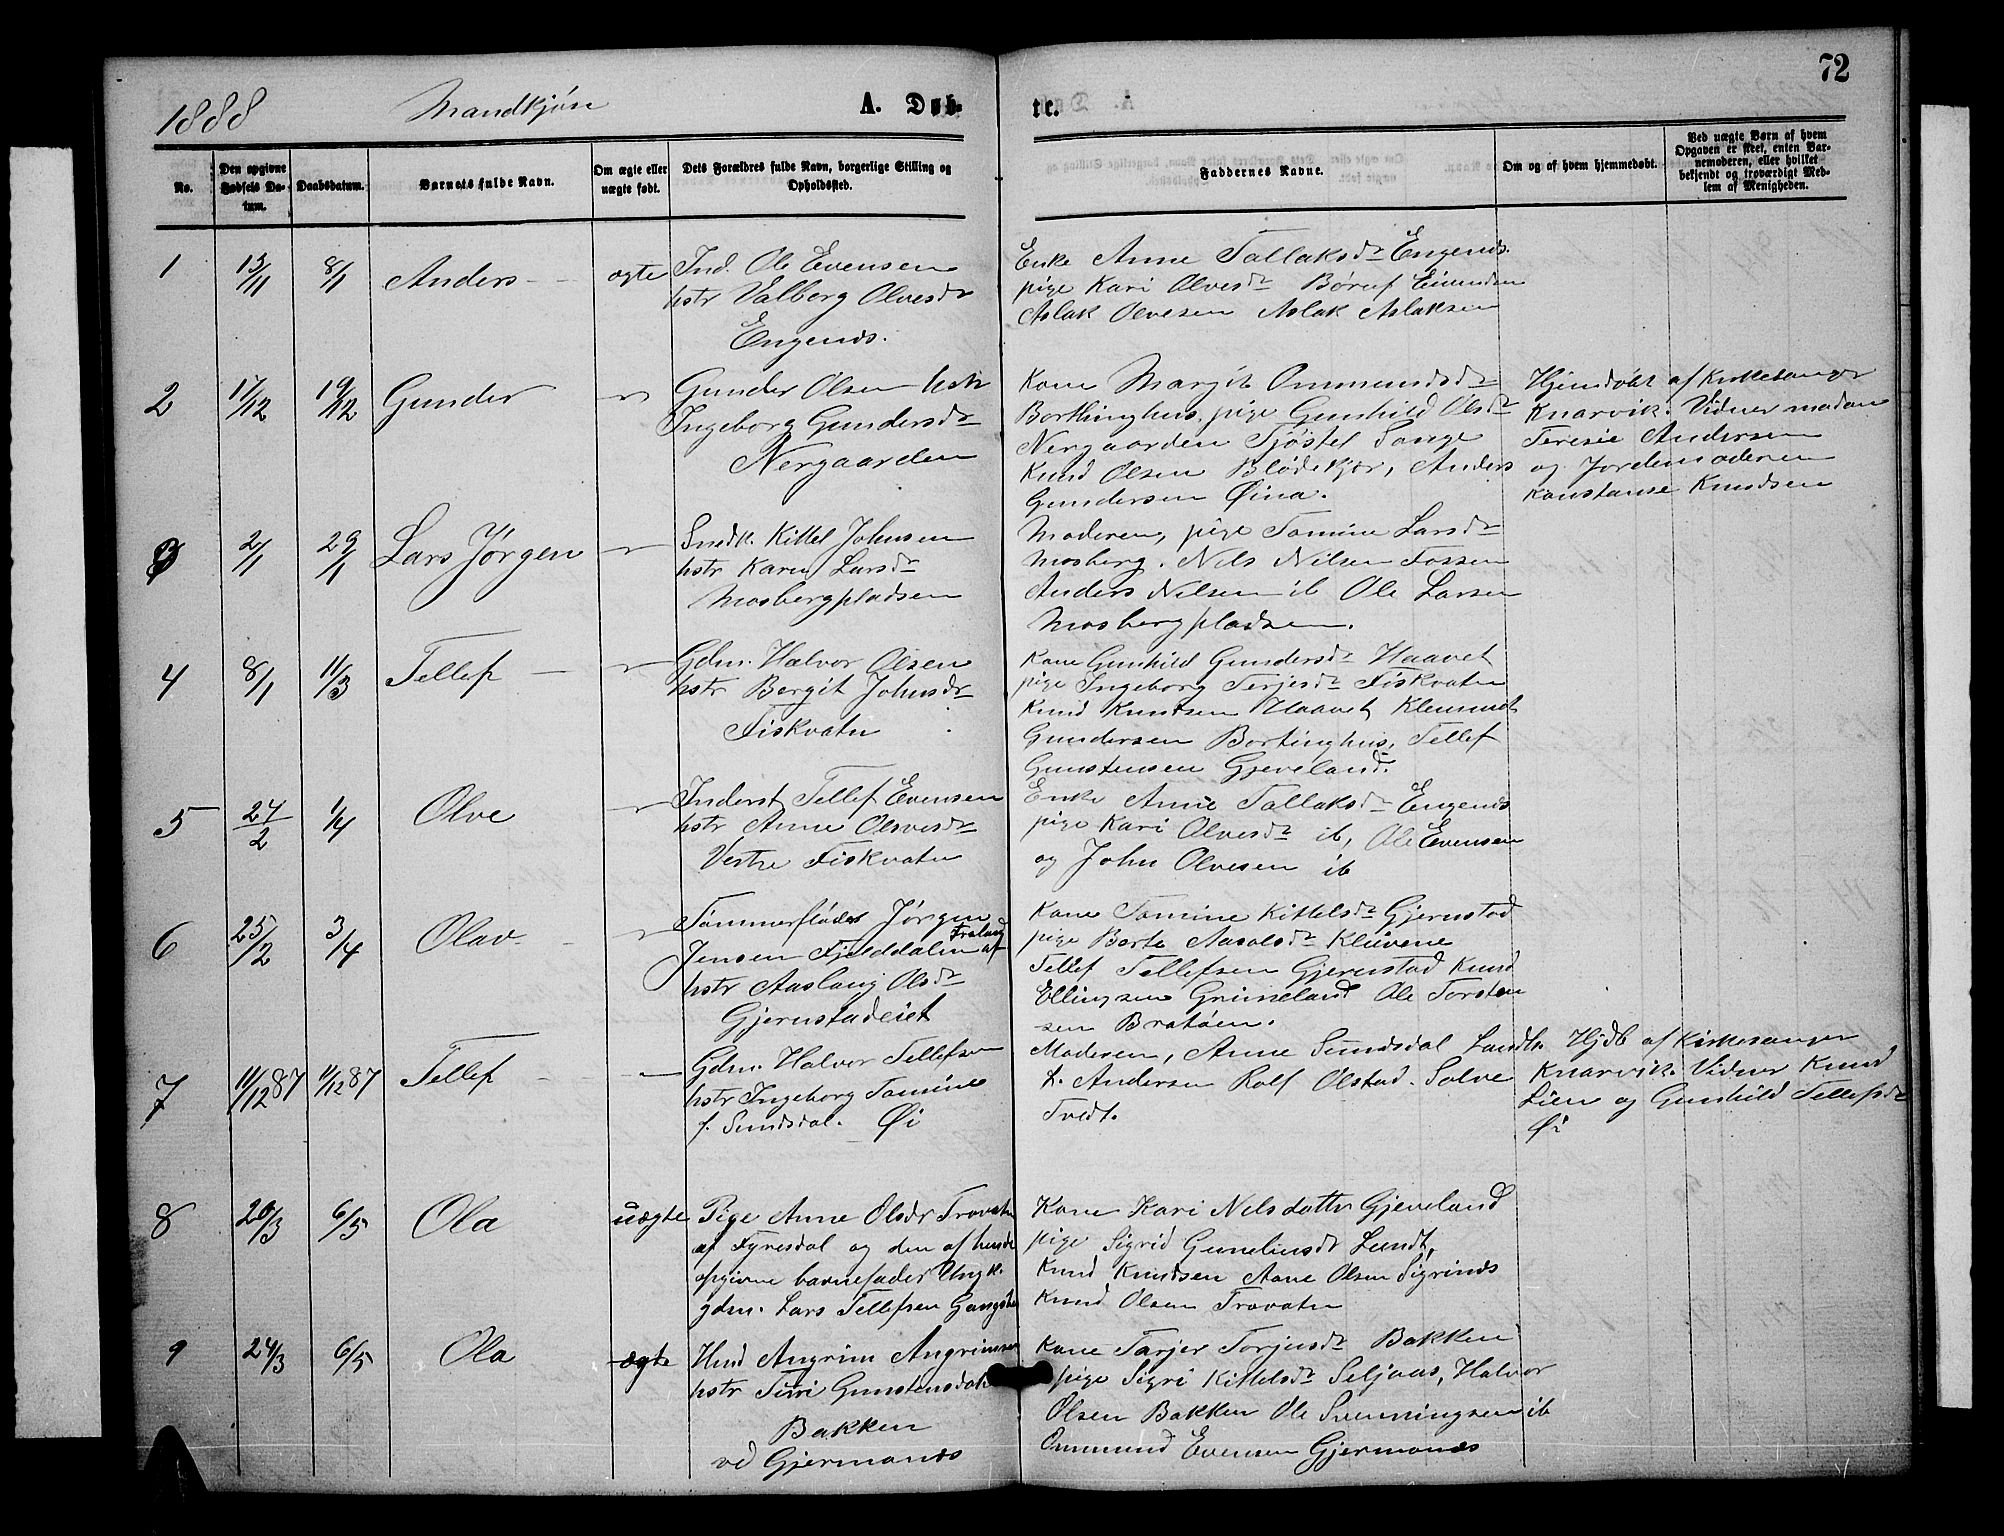 72
1888 Mandkjøn A. Døb-
te.
No.
Den opgivne Fødsels Da-
tum.
Daabsdatum.
Barnets fulde Navn.
Om ægte eller
uægte født.
Dets Forældres fulde Navn, borgerlige Stilling og
Opholdssted.
Faddernes Navne.
Om og af hvem hjemmedøbt.
Ved uægte Børn af hvem
Opgaven er skeet, enten Bar-
nemoderen, eller hvilket
bekjendt og troværdigt Med-
lem af Menigheden.
1 13/11 8/1 Anders ægte
Ind. Ole Evensen
hstr Valborg Olvesdr
Engenes.
Enke Anne Tallaksdr Engenes.
pige Kari Olvesdr
Aslak Olvesen Aslak Aslaksen
2 17/12 19/12 Gunder
Gunder Olsen hstr
Ingeborg Gundersdr
Nergaarden
Kone Margit Ommundsdr
Borthinghus. pige Gunhild Olsdr
Nergaarden Tjøstel Songe
Knud Olsen Blødekjær, Anders
Gundersen Øina.
Hjemdøbt af Kirkesanger
Knarvik. Vidner madam
Teresie Andersen
og Jordemoderen
Konstanse Knudsen
3 2/1 29/1 Lars Jørgen
Snedk. Kittel Johnsen
hstr Karen Larsdr
Mosbergpladsen
Moderen, pige Tomine Larsdr
Mosberg. Nels Nilsen Fossen
Anders Nilsen ib Ole Larsen
Mosbergpladsen.
4 8/1 11/3 Tellef
Gdm. Halvor Olsen
hstr Bergit Johnsdr
Fiskvatn
Kone Gunhild Gundersdr Haavet
pige Ingeborg Terjesdr Fiskvatn
Knud Knutsen Haavet Klemmet
Gundersen Bortinghus, Tellef
Gunstensen Gjeveland.
5 27/2 1/4 Olve
Inderst Tellef Evensen
hstr Anne Olsvesdr
Vestre Fiskvatn
Enke Anne Tallaksdr Engenes
pige Kari Olvesdr ib, Ole Evensen
og John Olvesen ib
6 25/2 3/4 Olav
Tømmerfløder Jørgen
Jensen Fjelddalen af Froland
hstr Aaslaug Olsdr
Gjerustadeiet
Kone Tomine Kittelsdr Gjerustad
pige Berte Aasolsdr Kleivene
Tellef Tellefsen Gjerustad Knud
Ellingsen Grimeland Ole Torsten
sen Bratøen.
7 11/12 87 11/12 87 Tellef
Gdm. Halvor Tellefsen
hstr Ingeborg Tomine
f. Sundsdal. Øi
Moderen, Anne Sundsdal Landh.
L. Andersen Rolf Olstad. Solve
Tvedt.
Hjdb af Kirkesanger
Knarvik. Vidner Knud
Lien og Gunhild Tellefsdr
Øi
8 20/3 6/5 Ola uægte
Pige Anne Olsdr Trovatn
af Fyresdal og den af hende
opgivne barnefader Ungk.
gdm. Lars Tellefsen
Kone Kari Nelsdatter Gjeveland
pige Sigrid Guneliusdr Lundt,
Knud Knudsen Aane Olsen Sigrinds
Knud Olsen Trovatn
9 24/3 6/5 Ola ægte
Husd Angrim Angrimsen
hstr Turi Gunstensdatt
Bakken
ved Gjermones
Kone Tarjer Torjusdr Bakken
pige Sigri Kittelsdr Seljaas, Halvor
Olsen Bakken Ole Svenningsen ib
Ommund Evensen Gjermones